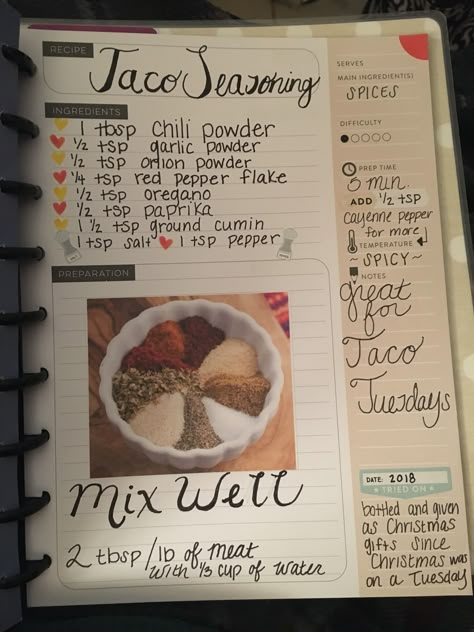 RECIPE
Taco Seasoning
INGREDIENTS
1 tbsp chili powder
1/2 tsp garlic powder
1/2 tsp onion powder
1/4 tsp red pepper flake
1/2 tsp oregano
1/2 tsp paprika
1 1/2 tsp ground cumin
1 tsp salt 1 tsp pepper
PREPARATION
Mix Well
2 tbsp/lb of meat
with 1/3 cup of water
SERVES
MAIN INGREDIENT(S)
SPICES
DIFFICULTY
PREP TIME
5 min.
ADD 1/2 tsp
cayenne pepper
for more
TEMPERATURE
~ SPICY ~
NOTES
great
for
Taco
Tuesdays
DATE: 2018
TRIED ON
bottled and given
as Christmas
gifts since
Christmas was
on a Tuesday